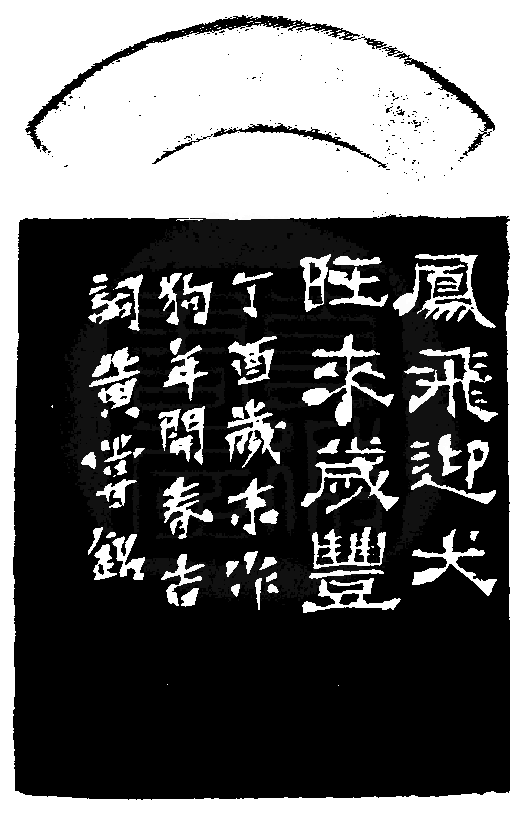 鳳飛迎犬
旺來歲豐
丁酉歲末作
狗年開春吉
詞黃嘗銘